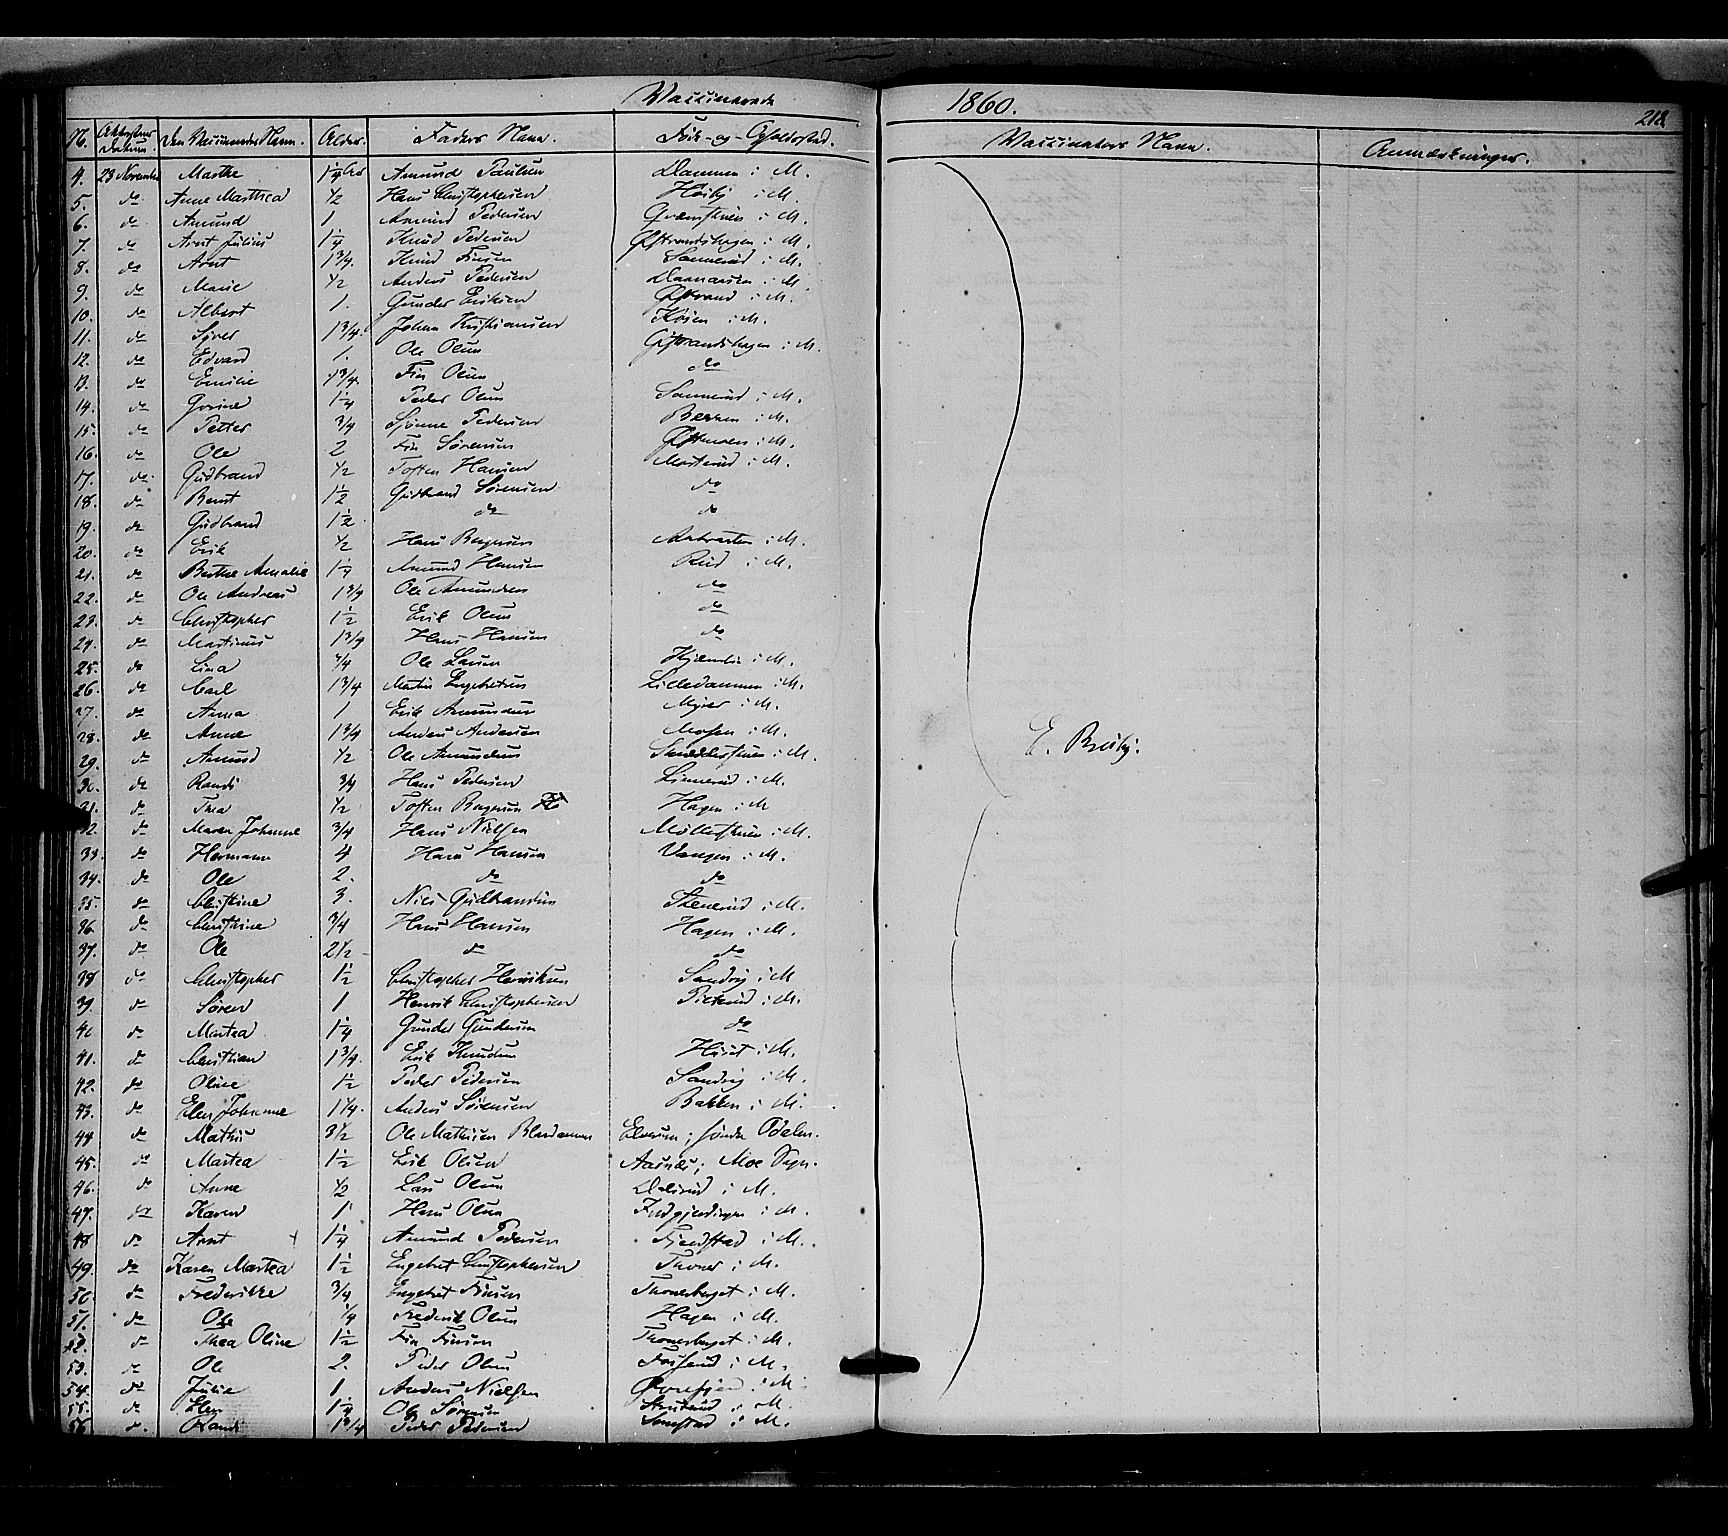 Vaccinerede 1860. 218
No. Attestens Datum. Den Vaccineredes Navn. Alder. Faders Navn. Føde- og Opholdssted. Vaccinators Navn. Anmærkninger.
4. 23 November Marthe 1 1/4 Aar Amund Paulsen Dammen i M.
5. do Anne Marthea 1/2 Hans Christophersen Høiby i M.
6. do Amund 1 Amund Pedersen i M.
7. do Arnt Julius 1 1/4 Knud Pedersen i M.
8. do Arnt 1 3/4. Knud Finsen Sannerud i M.
9. do Marie 1/2 Anders Pedersen i M.
10. do Albert 1. Gunder Eriksen i M.
11. do Syver 1 3/4. Johan Kristiansen i M.
12. do Edvard 1. Ole Olsen do
13. do Emilie 1 3/4. Fin Olsen Sannerud i M.
14. do Grine 1 1/4 Peder Olsen Berren i M.
15. do Petter 3/4 Sjønne Pedersen i M.
16. do Ole 2 Fin Sørensen Morterud i M.
17. do Gudbrand 1/2 Tosten Hansen do
18. do Bernt 1 1/2 Gudbrand Sørensen do
19. do Gudbrand 1 1/2 do
20. do Erik 1/2 Hans Bergersen i M.
21. do Berthe Amalie 1 1/4 Amund Hansen Rud i M.
22. do Ole Andreas 1 3/4 Ole Amundsen do
23. do Christopher 1 1/2 Erik Olsen do
24. do Martinus 1 3/4 Hans Hansen do
25. do Lina 3/4 Ole Larsen Kjernli i M.
26. do Carl 1 3/4 Martin Engebretsen Lilledammen i M.
27. do Anna 1 Erik Amundsen Myrer i M.
28. do Anne 1 3/4 Anders Andersen Mosen i M.
29. do Amund 1/2 Ole Amundsen i M.
30. do Randi 3/4 Hans Pedersen Linnerud i M.
31. do Thea 1/2 Tosten Bergersen Hagen i M
32. do Maren Johanne 3/4 Hans Nielsen Møllerstuen i M.
33. do Hermann 4 Hans Hansen Vangen i M.
34. do Ole 2. do do
35. do Christine 3. Niels Gudbrandsen Stenerud i M.
36. do Christine 3/4 Hans Hansen Hagen i M.
37. do Ole 2 1/2 do do
38 do Christopher 1 1/2 Christopher Henriksen Sandvig i M
39. do Søren 1 Henrik Christophersen i M.
40 do Martea 1 1/4 Gunder Gundersen do
41. do Christian 1 3/4. Erik Knudsen Huset i M.
42. do Oline 1 1/2 Peder Pedersen Sandvig i M.
43. do Elen Johanne 1 1/4. Anders Sørensen Bakken i M.
44 do Mathis 3 1/2 Ole Mathisen i søndre Odalen.
45. do Martea 1 1/2 Erik Olsen Aasnæs i Moe Sogn.
46. do Anne 1/2 Lars Olsen Dalerud i M.
47. do Karen 1 Hans Olsen i M.
48 do Arnt 1 1/4 Amund Pedersen Fjeldstad i M.
49. do Karen Martea 1 1/2 Engebret Christophersen Throner i M.
50 do Frederikke 3/4 Engebret Finsen Thronerberget i M.
51. do Ole 1/4 Frederik Olsen Hagen i M.
52. do Thea Oline 1 1/2 Fin Finsen Thronerberget i M.
53. do Ole 2. Peder Olsen Fosserud i M.
54. do Julie 1 Anders Nielsen i M.
55. do Elen 1 1/4 Ole Sørensen i M.
56 do Randi 1 3/4 Peder Pedersen Somstad i M.
E. Bruby.